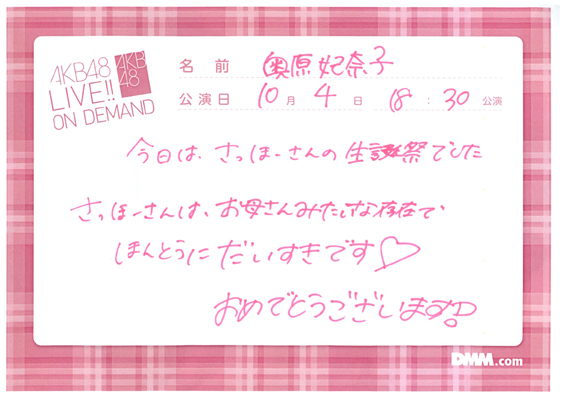 AKB48
LIVE!!
ON DEMAND
AKB
48
名前 奥原妃奈子
公演日 10月4日 18:30公演
今日は、さっほーさんの生誕祭でした
さっほーさんは、お母さんみたいな存在で
ほんとうにだいすきです♡
おめでとうございます!
DMM.com